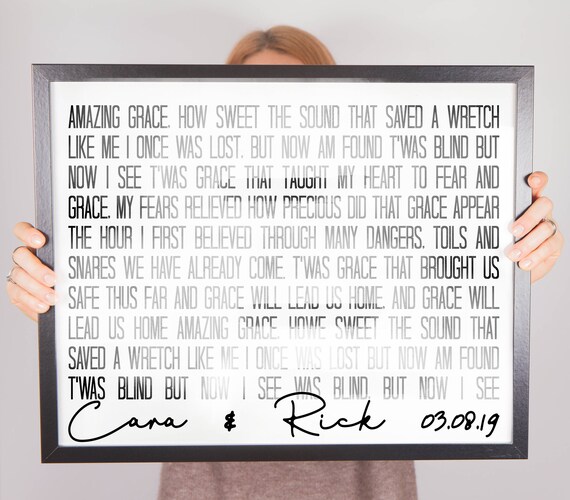 AMAZING GRACE. HOW SWEET THE SOUND THAT SAVED A WRETCH
LIKE ME I ONCE WAS LOST. BUT NOW AM FOUND T'WAS BLIND BUT
NOW I SEE T'WAS GRACE THAT TAUGHT MY HEART TO FEAR AND
GRACE. MY FEARS RELIEVED HOW PRECIOUS DID THAT GRACE APPEAR
THE HOUR I FIRST BELIEVED THROUGH MANY DANGERS. TOILS AND
SNARES WE HAVE ALREADY COME. T'WAS GRACE THAT BROUGHT US
SAFE THUS FAR AND GRACE WILL LEAD US HOME. AND GRACE WILL
LEAD US HOME AMAZING GRACE. HOWE SWEET THE SOUND THAT
SAVED A WRETCH LIKE ME I ONCE WAS LOST BUT NOW AM FOUND
T'WAS BLIND BUT NOW I SEE WAS BLIND, BUT NOW I SEE
Cara & Rick 03.08.19